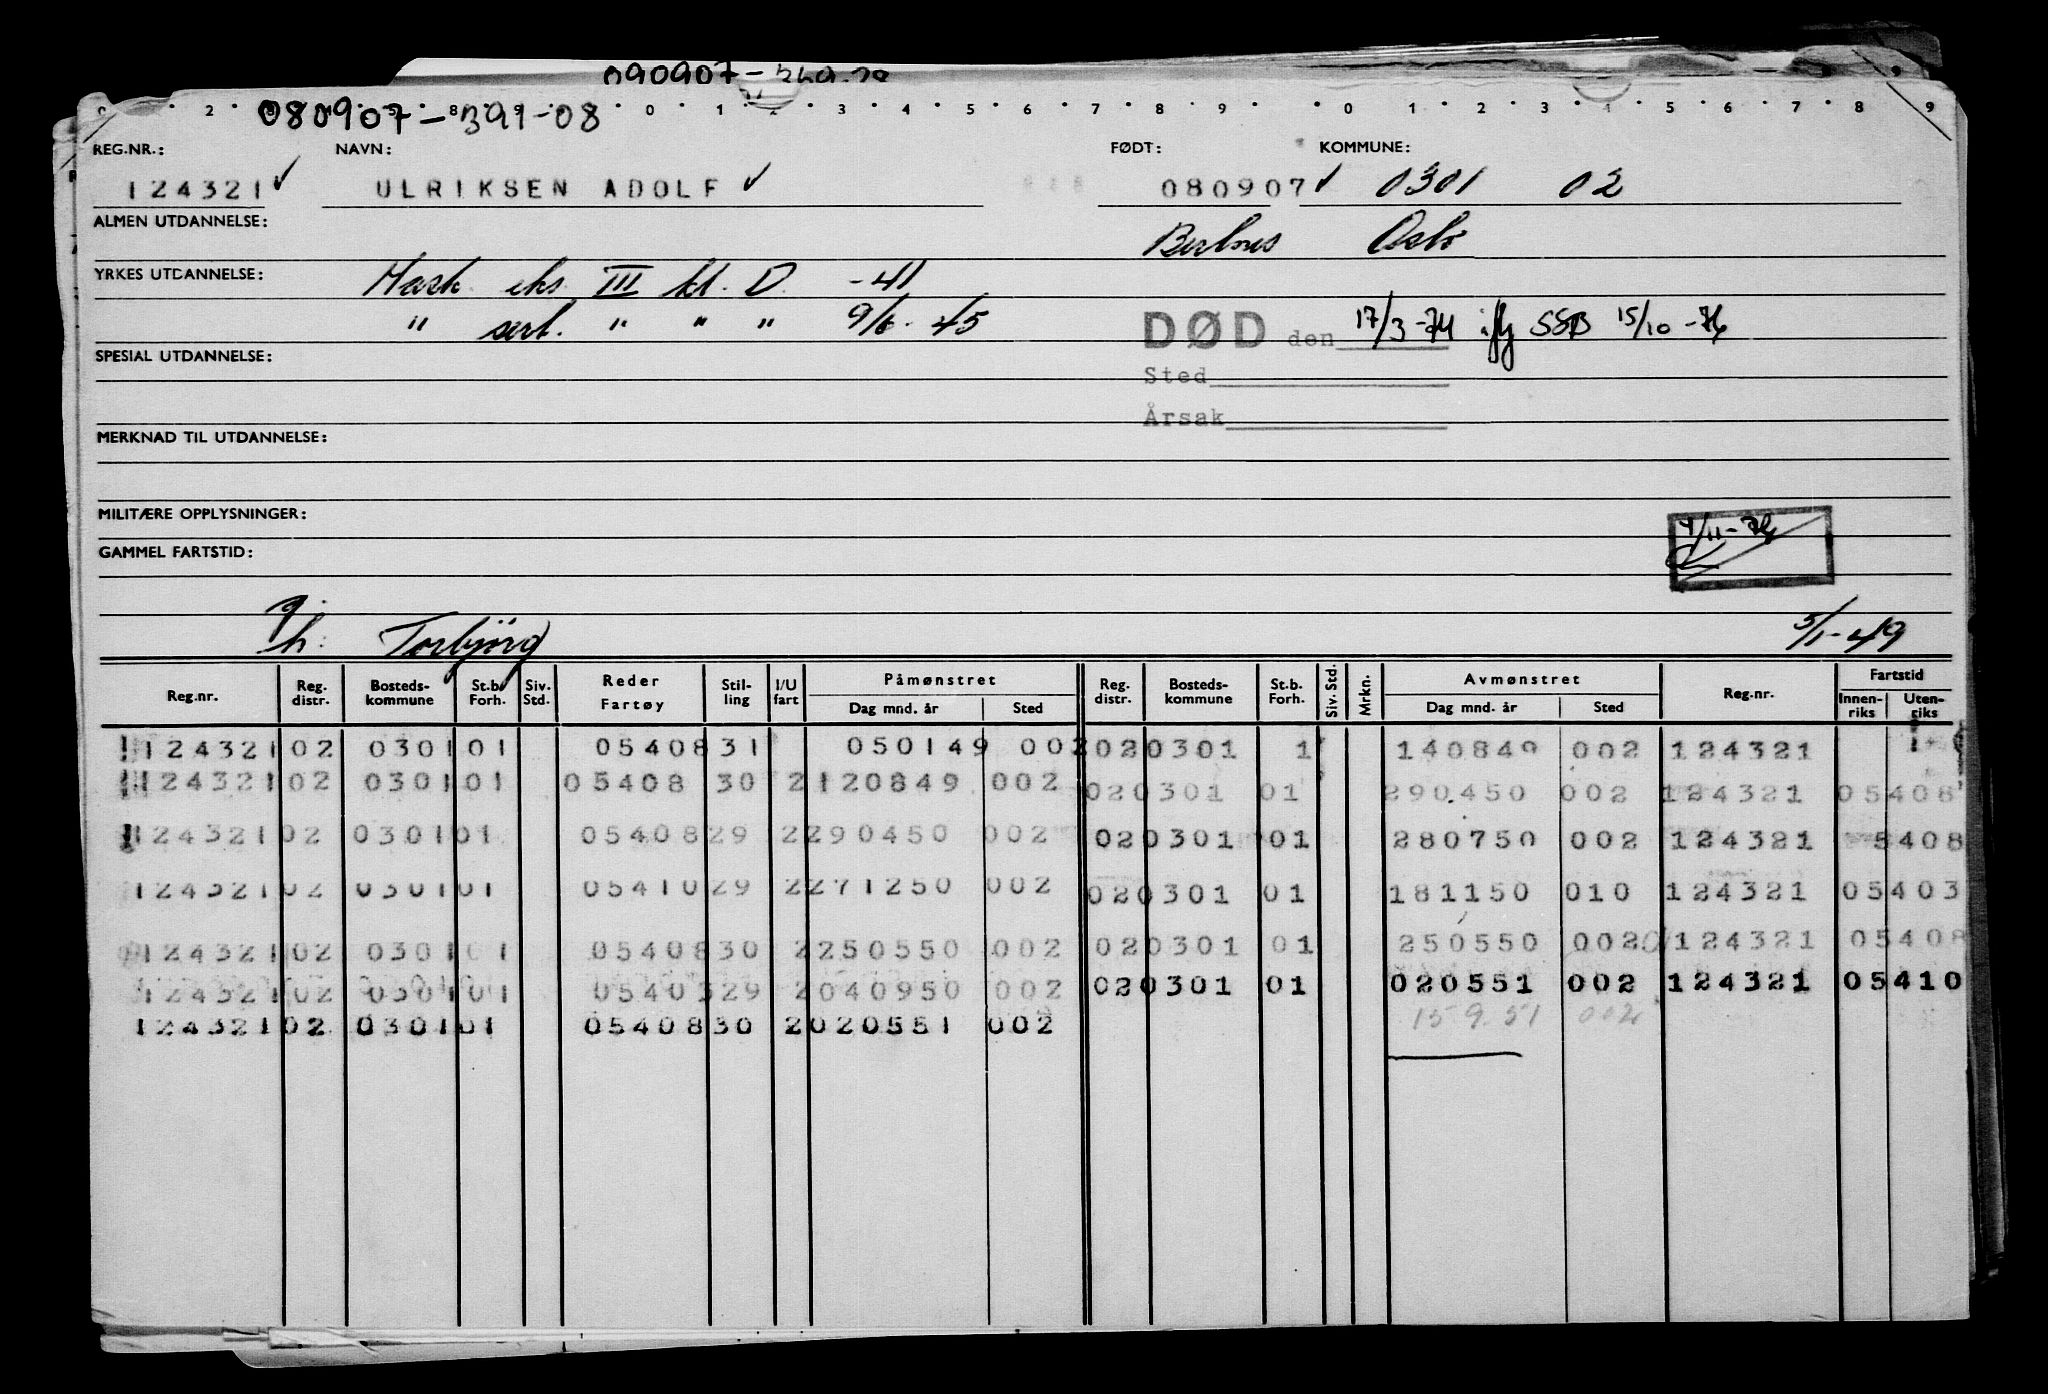 090907-
080907-391-08
REG.NR.: NAVN: FØDT: KOMMUNE:
124321 ✓ ULRIKSEN ADOLF ✓ 080907 ✓ 0301 02
ALMEN UTDANNELSE: Oslo
YRKES UTDANNELSE: Mask. eks. III kl. D. -41
" sert. " " " 9/6-45 DØD den 17/3-74 iflg SSB 15/10-76
SPESIAL UTDANNELSE: Sted
Årsak
MERKNAD TIL UTDANNELSE:
MILITÆRE OPPLYSNINGER: 4/11-76
GAMMEL FARTSTID:
g.
h: Torbjörg 5/1-49
Reg.nr. Reg. distr. Bosteds-kommune St.b. Forh. Siv. Std. Reder Fartøy Stil-ling I/U fart Påmønstret Dag mnd. år Sted Reg. distr. Bosteds-kommune St.b. Forh. Siv. Std. Mrkn. Avmønstret Dag mnd. år Sted Reg.nr. Fartstid Innen-riks Uten-riks
124321 02 0301 01 05408 31 050149 002 02 0301 1 140849 002 124321
124321 02 0301 01 05408 30 2 120849 002 02 0301 01 290450 002 124321 05408
124321 02 0301 01 05408 29 2 290450 002 02 0301 01 280750 002 124321 5408
124321 02 0301 01 05410 29 2 271250 002 02 0301 01 181150 010 124321 05403
124321 02 0301 01 05408 30 2 250550 002 02 0301 01 250550 002 124321 05408
124321 02 0301 01 05403 29 2 040950 002 02 0301 01 020551 002 124321 05410
124321 02 0301 01 05408 30 2 020551 002 15 9. 51 002